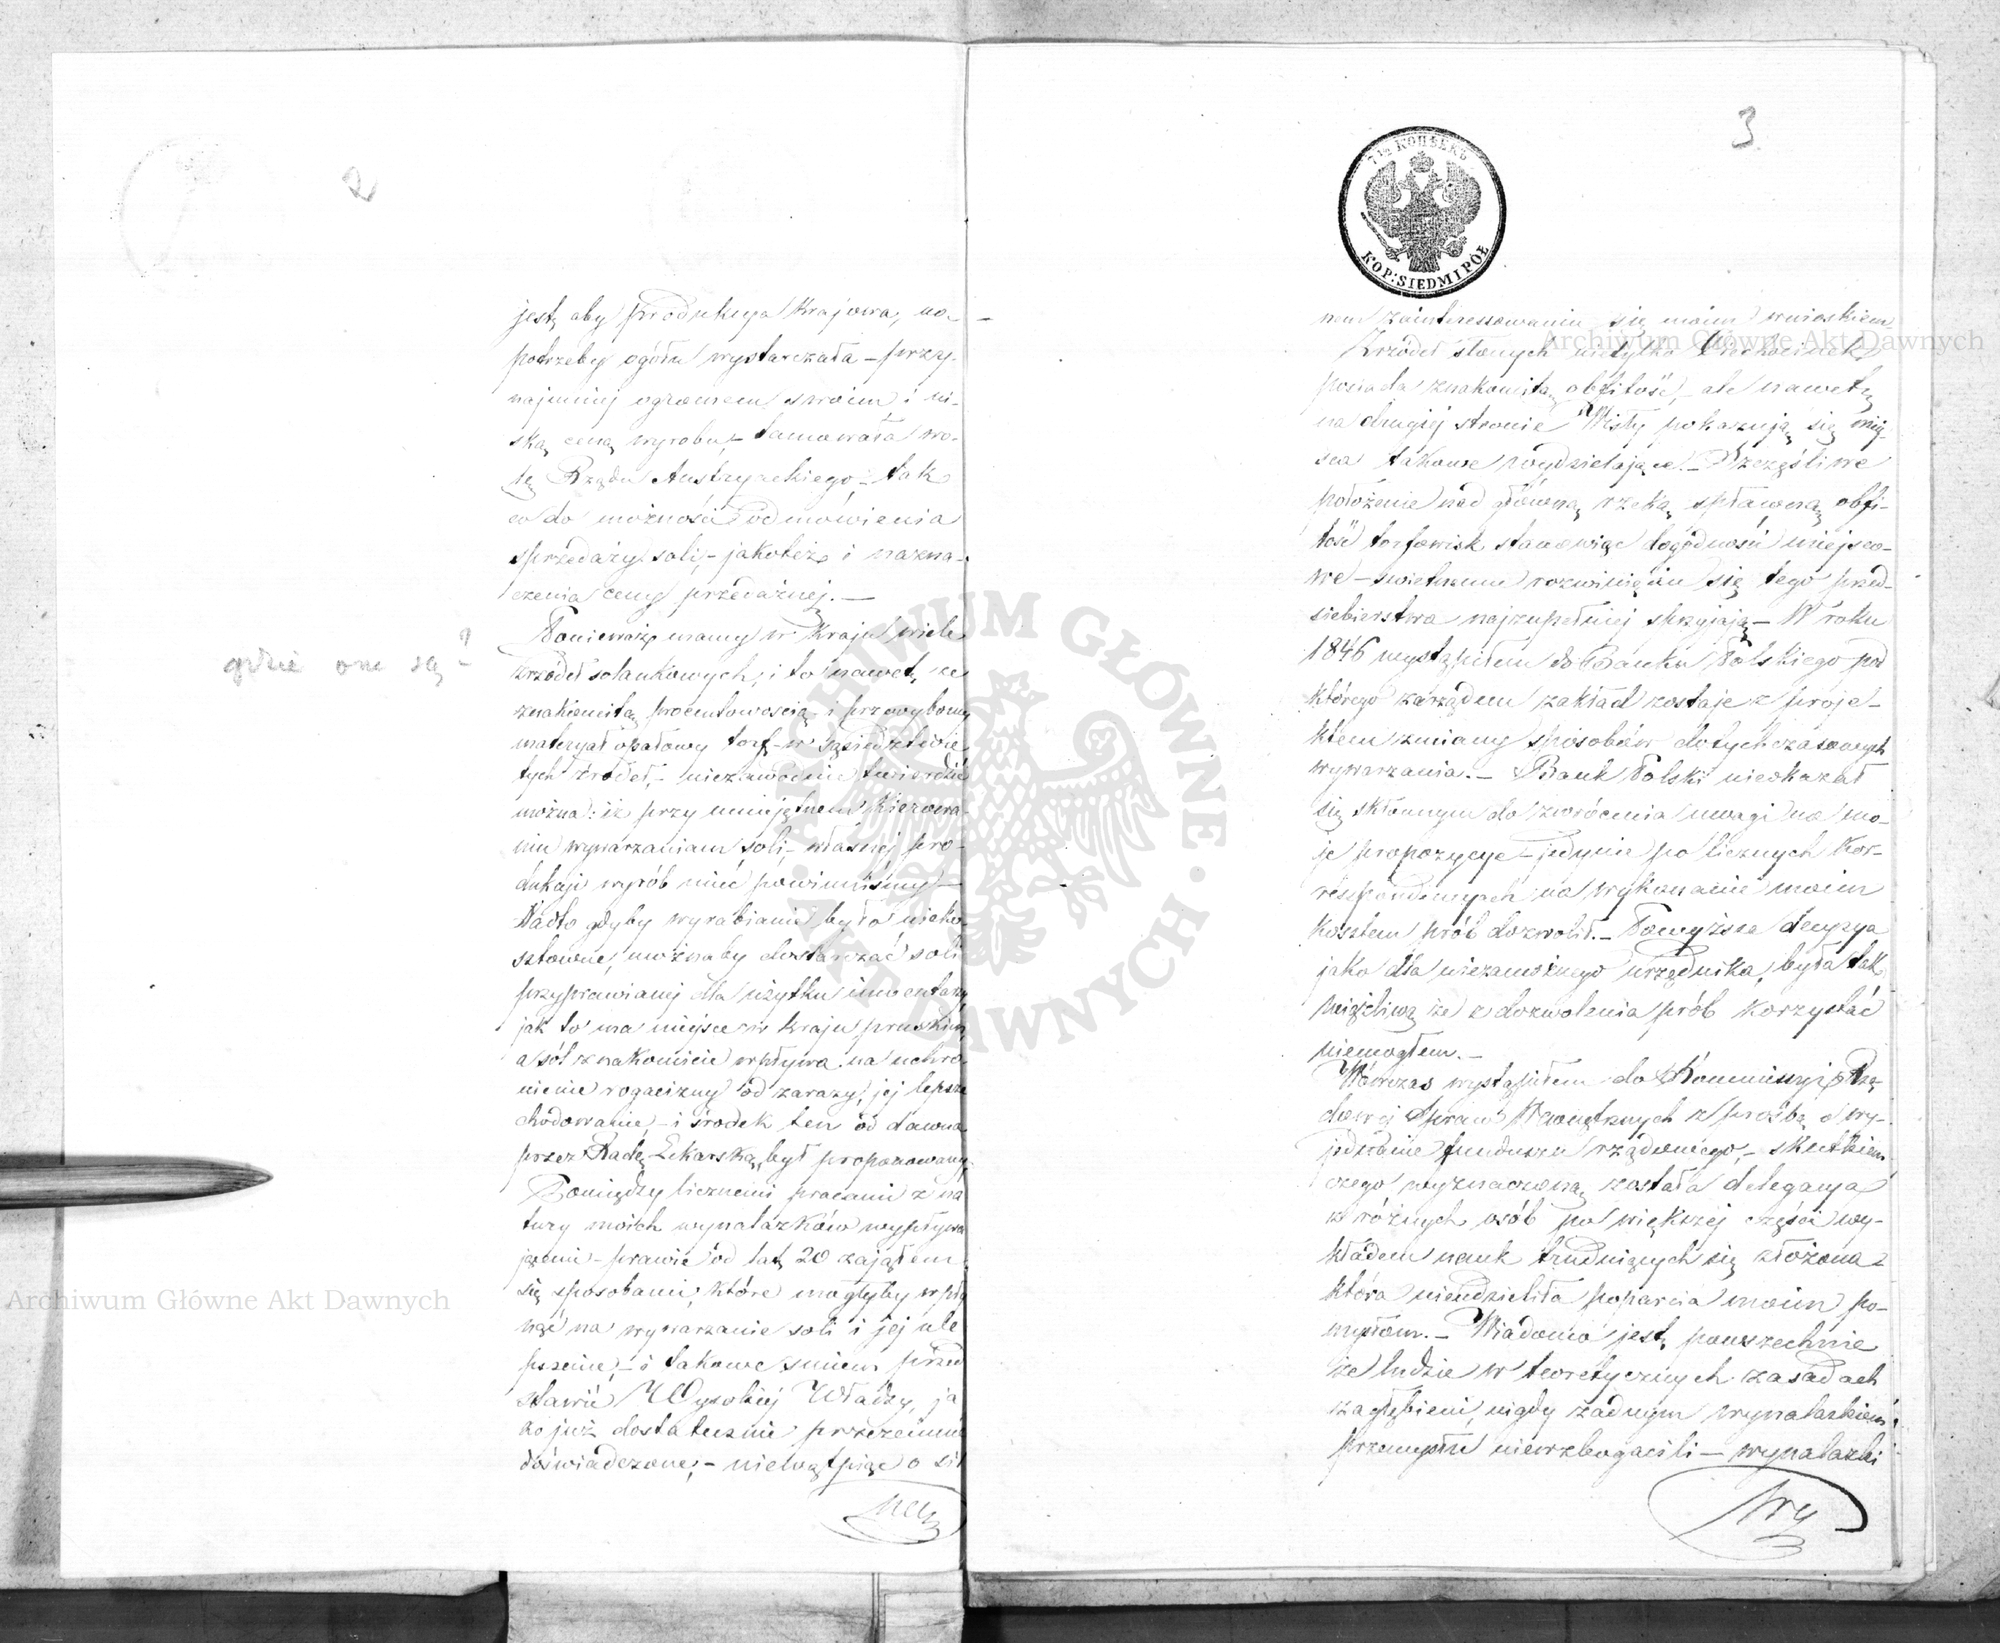 2
jest, aby produkcya krajowa, na
potrzeby ogółu wystarczała – przy-
najmniej ogromem swoim i ni-
ską ceną wyrobu, – tamowała wo-
lę Rządu Austryackiego – tak
co do możności odmówienia
sprzedaży soli, – jakoteż i nazna-
czenia ceny przedażnej. –
Ponieważ mamy w kraju wiele
gdzie one są?
źródeł solankowych, i to nawet, ze
znakomitą procentowością i przewyborny
materyał opałowy torf – w sąsiedztwie
tych źródeł, – niezawodnie twierdzić
można: iż przy umiejętnem kierowa-
niu wywarzaniem soli, – własnej pro-
dukcji wyrób mieć powinniśmy –
Nadto gdyby wyrabianie było nieko-
sztowne, możnaby dostarczać soli
przyprawianej dla użytku inwentarzy,
jak to ma miejsce w kraju pruskim,
a sól znakomicie wpływa na uchro-
nienie rogacizny od zarazy, jej lepsze
chodowanie, – i środek ten od dawna
przez Radę Lekarską, był proponowany,
Pomiędzy licznemi pracami z na
tury moich wynalazków wypływa
jącemi – prawie od lat 20 zająłem
się sposobami, które mogłyby wpły
nąć na wywarzanie soli i jej ule
pszenie, – i takowe smiem przed
stawić Wysokiej Władzy, ja
ko już dostatecznie przezemnie
doświadczone, – niewątpiąc o sil
nem
3
7 1/2 КОПѢЕКЪ
KOP: SIEDM I PÓŁ
nem zainteressowaniu się moim wnioskiem.
Źrzódeł słonych nietylko Ciechocinek
posiada znakomitą obfitość, ale nawet,
na drugiej stronie Wisły pokazują się miej-
sca takowe wydzielające. – Szczęśliwe
położenie nad główną rzeką spławną, obfi-
tość torfowisk stanowiąc dogodność miejsco-
we – świetnemu rozwinięciu się tego przed-
siebierstwa najzupełniej skrzyjają – W roku
1846 wystąpiłem do Banku Polskiego pod
którego zarządem zakład zostaje z proje-
ktem zmiany sposobów dotychczasowych
wywarzania. – Bank Polski nieokazał
się skłonnym do zwrócenia uwagi na mo-
je propozycye – jedynie po licznych kor-
respondencyach na wykonanie moim
kosztem prób dozwolił. – Powyższa decyzya
jako dla niezamożnego urzędnika, była tak
że z dozwolenia prób korzystać
niemogłem. –
Wówczas wystąpiłem do Kommisyi Rzą-
dowej Spraw Wewnętrznych z prośbą o wy-
jednanie funduszu rządowego, – skutkiem
czego wyznaczoną została delegacya
z różnych osób po większej części wy-
kładem nauk trudniących się złożona
która nieudzieliła poparcia moim po-
mysłom. – Wiadomo jest, powszechnie
że ludzie w teoretycznych zasadach
zagłębieni, nigdy żadnym wynalazkiem
przemysłu niewzbogacili – wynalazki
Archiwum Główne Akt Dawnych
Archiwum Główne Akt Dawnych
ARCHIWUM GŁÓWNE AKT DAWNYCH